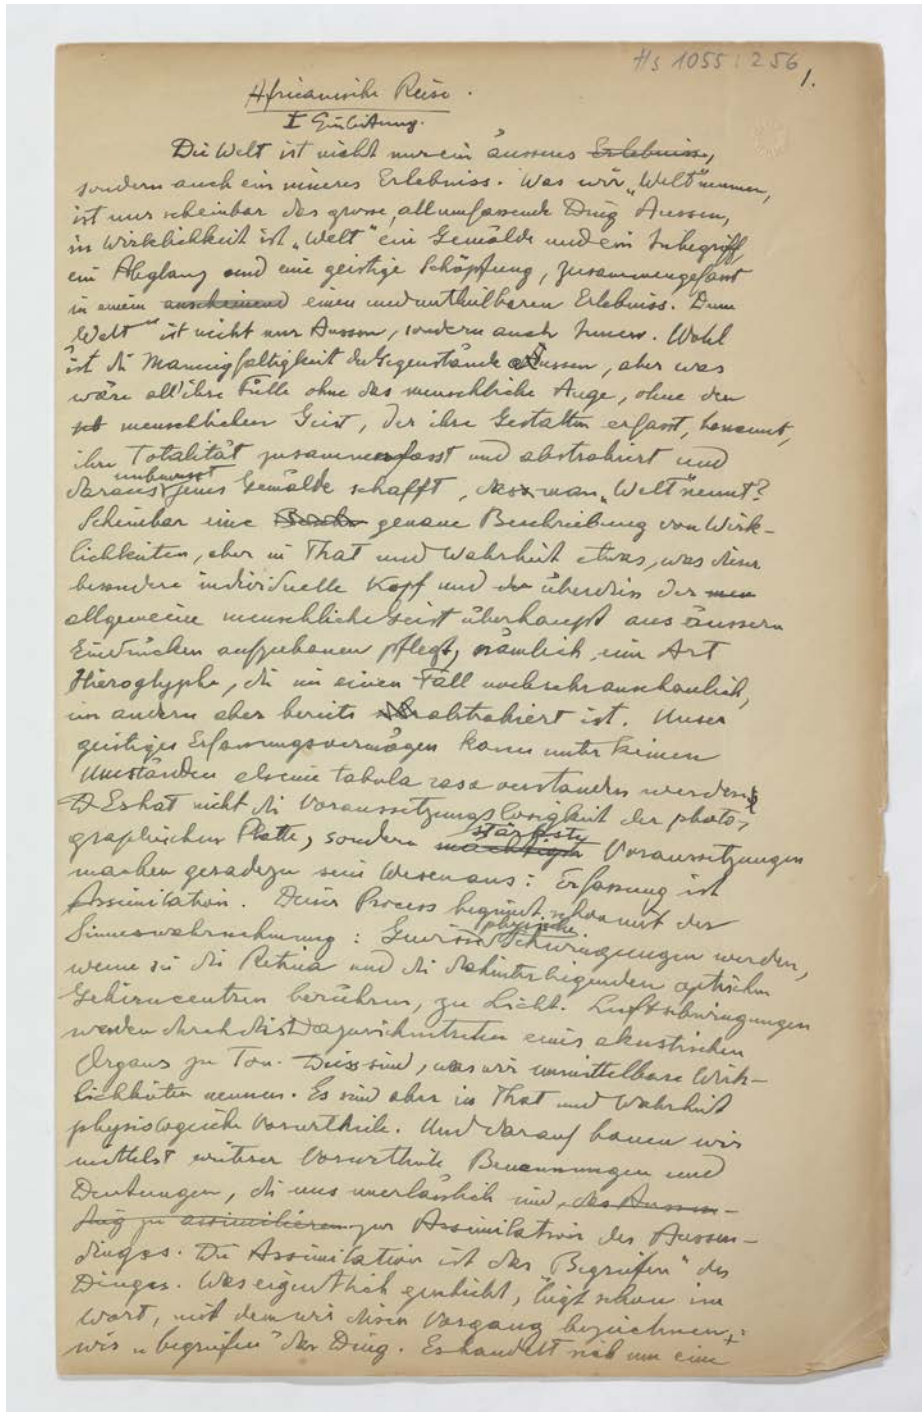 Hs 1055 : 256
1.
Africanische Reise.
I Einleitung.
Die Welt ist nicht nur ein äusseres Erlebniss,
sondern auch ein inneres Erlebniss. Was wir „Welt" nennen,
ist nur scheinbar das grosse, allumfassende Ding Aussen,
in Wirklichkeit ist „Welt" ein Gemälde und ein Inbegriff,
ein Abglanz und eine geistige Schöpfung, zusammengefasst
in einem anscheinend einen und untheilbaren Erlebniss. Denn
„Welt" ist nicht nur Aussen, sondern auch Innen. Wohl
ist die Mannigfaltigkeit der Gegenstände Aussen, aber was
wäre all' ihre Fülle ohne das menschliche Auge, ohne den
menschlichen Geist, der ihre Gestalten erfasst, benennt,
ihre Totalität zusammenfasst und abstrahiert und
daraus unbewusst jenes Gemälde schafft, das man „Welt" nennt?
Scheinbar eine genaue Beschreibung von Wirk-
lichkeiten, aber in That und Wahrheit etwas, was dieser
besondere individuelle Kopf und überdies der
allgemeine menschliche Geist überhaupt aus äussern
Eindrücken aufzubauen pflegt, nämlich eine Art
Hieroglyphe, die im einen Fall noch sehr anschaulich,
im andern aber bereits abstrahiert ist. Unser
geistiges Erfassungsvermögen kann unter keinen
Umständen als eine tabula rasa verstanden werden.
Es hat nicht die Voraussetzungslosigkeit der photo-
graphischen Platte, sondern mächtigste stärkste Voraussetzungen
machen geradezu sein Wesen aus: Erfassung ist
Assimilation. Dieser Process beginnt schon mit der
Sinneswahrnehmung: Gewisse physische Schwingungen werden,
wenn sie die Retina und die dahinterliegenden optischen
Gehirncentren berühren, zu Licht. Luftschwingungen
werden durch das Dazwischentreten eines akustischen
Organs zu Ton. Diess sind, was wir unmittelbare Wirk-
lichkeiten nennen. Es sind aber in That und Wahrheit
physiologische Vorurtheile. Und darauf bauen wir
mittelst weiterer Vorurtheile Benennungen und
Deutungen, die uns unerlässlich sind, das Aussen-
ding zu assimilieren zur Assimilation des Aussen-
dinges. Die Assimilation ist das „Begreifen" des
Dinges. Was eigentlich geschieht, liegt schon im
Wort, mit dem wir diesen Vorgang bezeichnen:
wir „begreifen" das Ding. Es handelt sich um eine